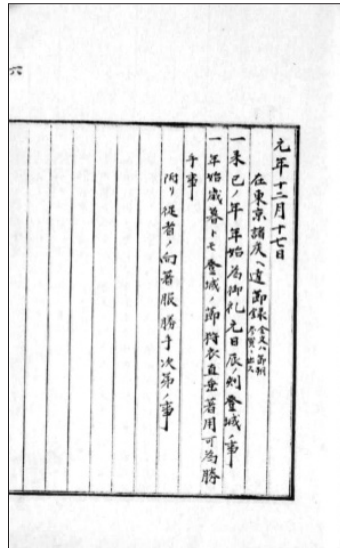 元年十二月十七日
在東京諸侯ヘ達節録
一来巳ノ年年始為御礼元日辰ノ刻登城ノ事
一年始歳暮トモ登城ノ節狩衣直垂着用可為勝
手事
附リ従者ノ向着服勝手次第ノ事
六